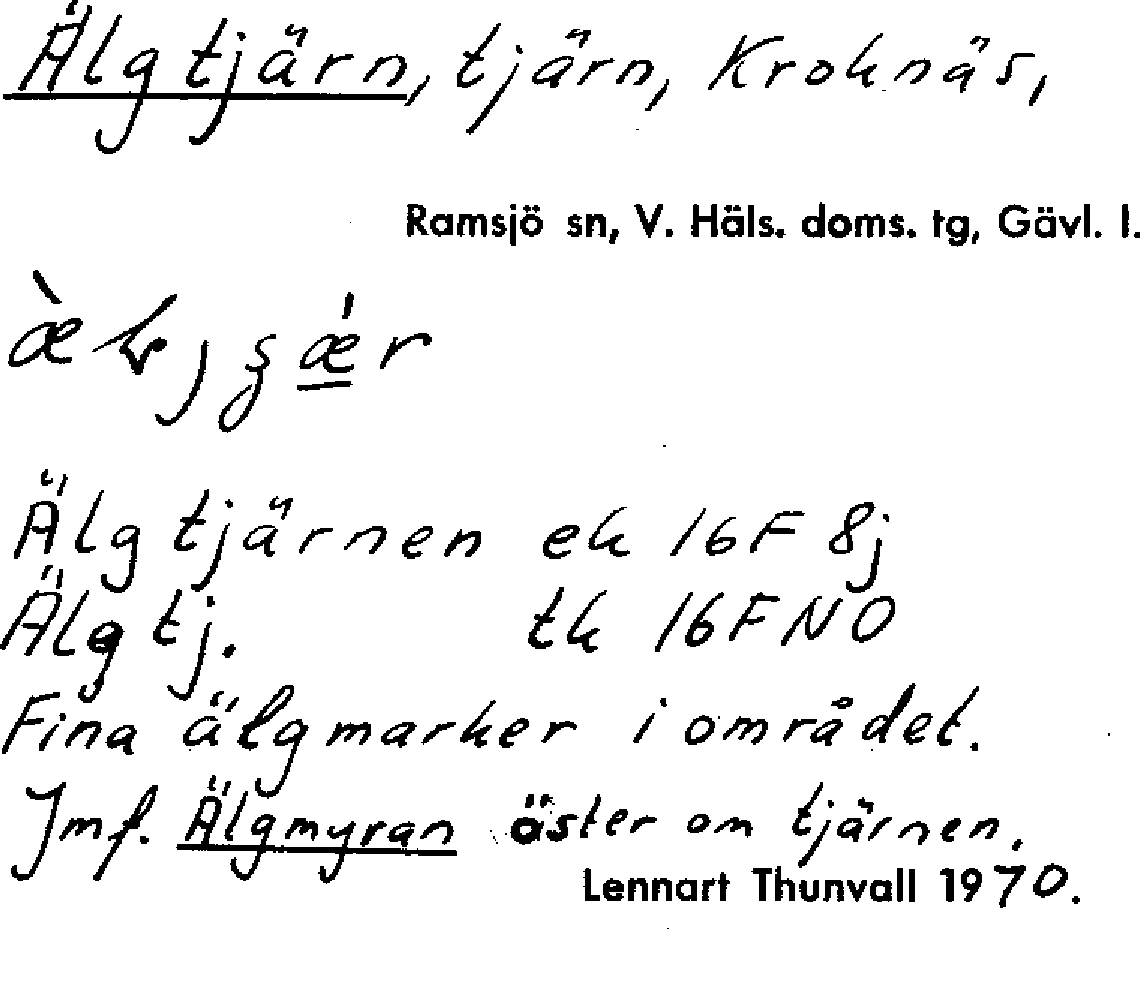 Älgtjärn, tjärn, Kroknäs,
Ramsjö sn, V. Häls. doms. tg, Gävl. l.
Älgtjärnen ek 16F 8j
Älgtj. tk 16F NO
Fina älgmarker i området.
Jmf. Älgmyran öster om tjärnen.
Lennart Thunvall 1970.